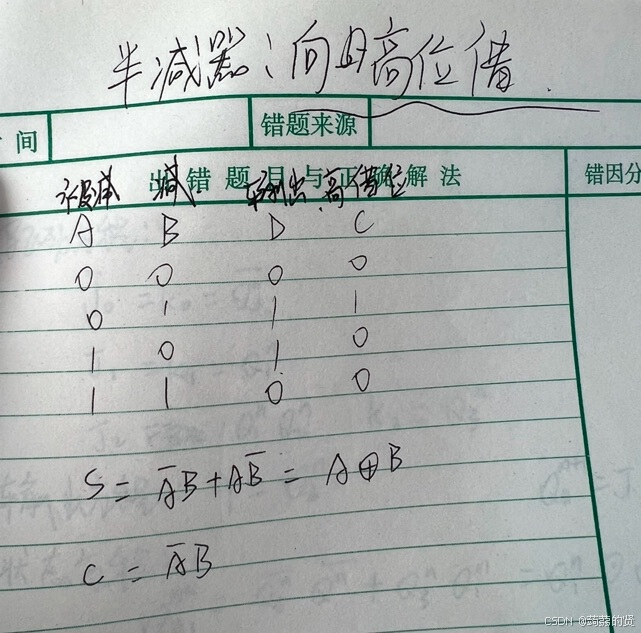 半减器：向高位借.
间 错题来源
出错题目与正确解法 错因分
被减 减 输出 高借位
A B D C
0 0 0 0
0 1 1 1
1 0 1 0
1 1 0 0
S = A̅B + AB̅ = A⊕B
C = A̅B
CSDN @蒟蒻的贤